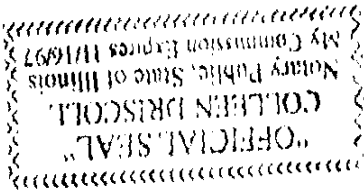 "OFFICIAL SEAL"
COLLEEN DRISCOLL
Notary Public, State of Illinois
My Commission Expires 11/16/97